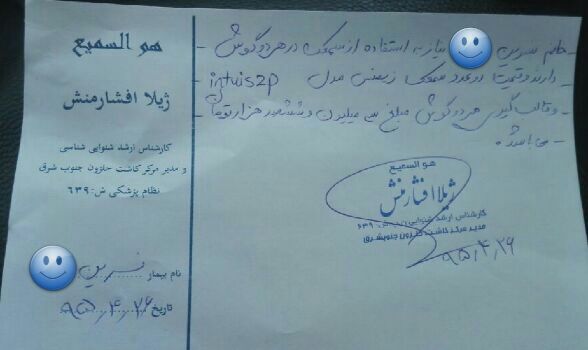 هو السميع
ژيلا افشارمنش
كارشناس ارشد شنوايى شناسى
و مدير مركز كاشت حلزون جنوب شرق
نظام پزشكى ش: ٦٣٩
نام بیمار: نسرین
تاریخ ۹۵,۴,۲۶
- خانم نسرین نیاز به استفاده از سمعک در هر دو گوش
- دارند و قیمت دو عدد سمعک زیمنس مدل intuis2p
- و قالب گیری هر دو گوش مبلغ سه میلیون و ششصد هزار تومان
- می باشد.
هو السميع
ژيلا افشارمنش
كارشناس ارشد شنوايى شناسى ن.پ.ش: ٦٣٩
مدير مركز كاشت حلزون جنوبشرق
۹۵,۴,۲۶